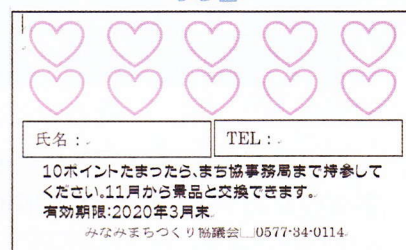 氏名:
TEL:
10ポイントたまったら、まち協事務局まで持参して
ください。11月から景品と交換できます。
有効期限:2020年3月末
みなみまちづくり協議会 0577-34-0114